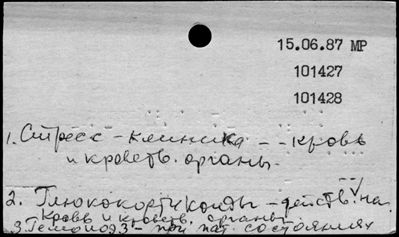 15.06.87 МР
101427
101428
1. Стресс - клиника - - кровь
и кроветв. органы.
2. Глюкокортикоиды - действ. на
кровь и кроветв. органы
3. Гемопоэз - при пат. состояниях